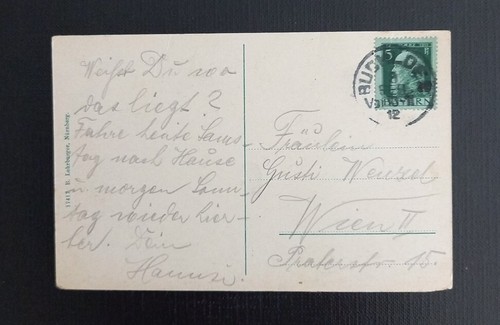 Weißt Du wo
das liegt?
Fahre heute Sams-
tag nach Hause
u. morgen Sonn-
tag wieder hier-
her. Dein
Hansi.
B. Lehrburger, Nürnberg.
5
BAYERN
12
Fräulein
Gusti Wenzel
Wien II
Praterstr. 45.